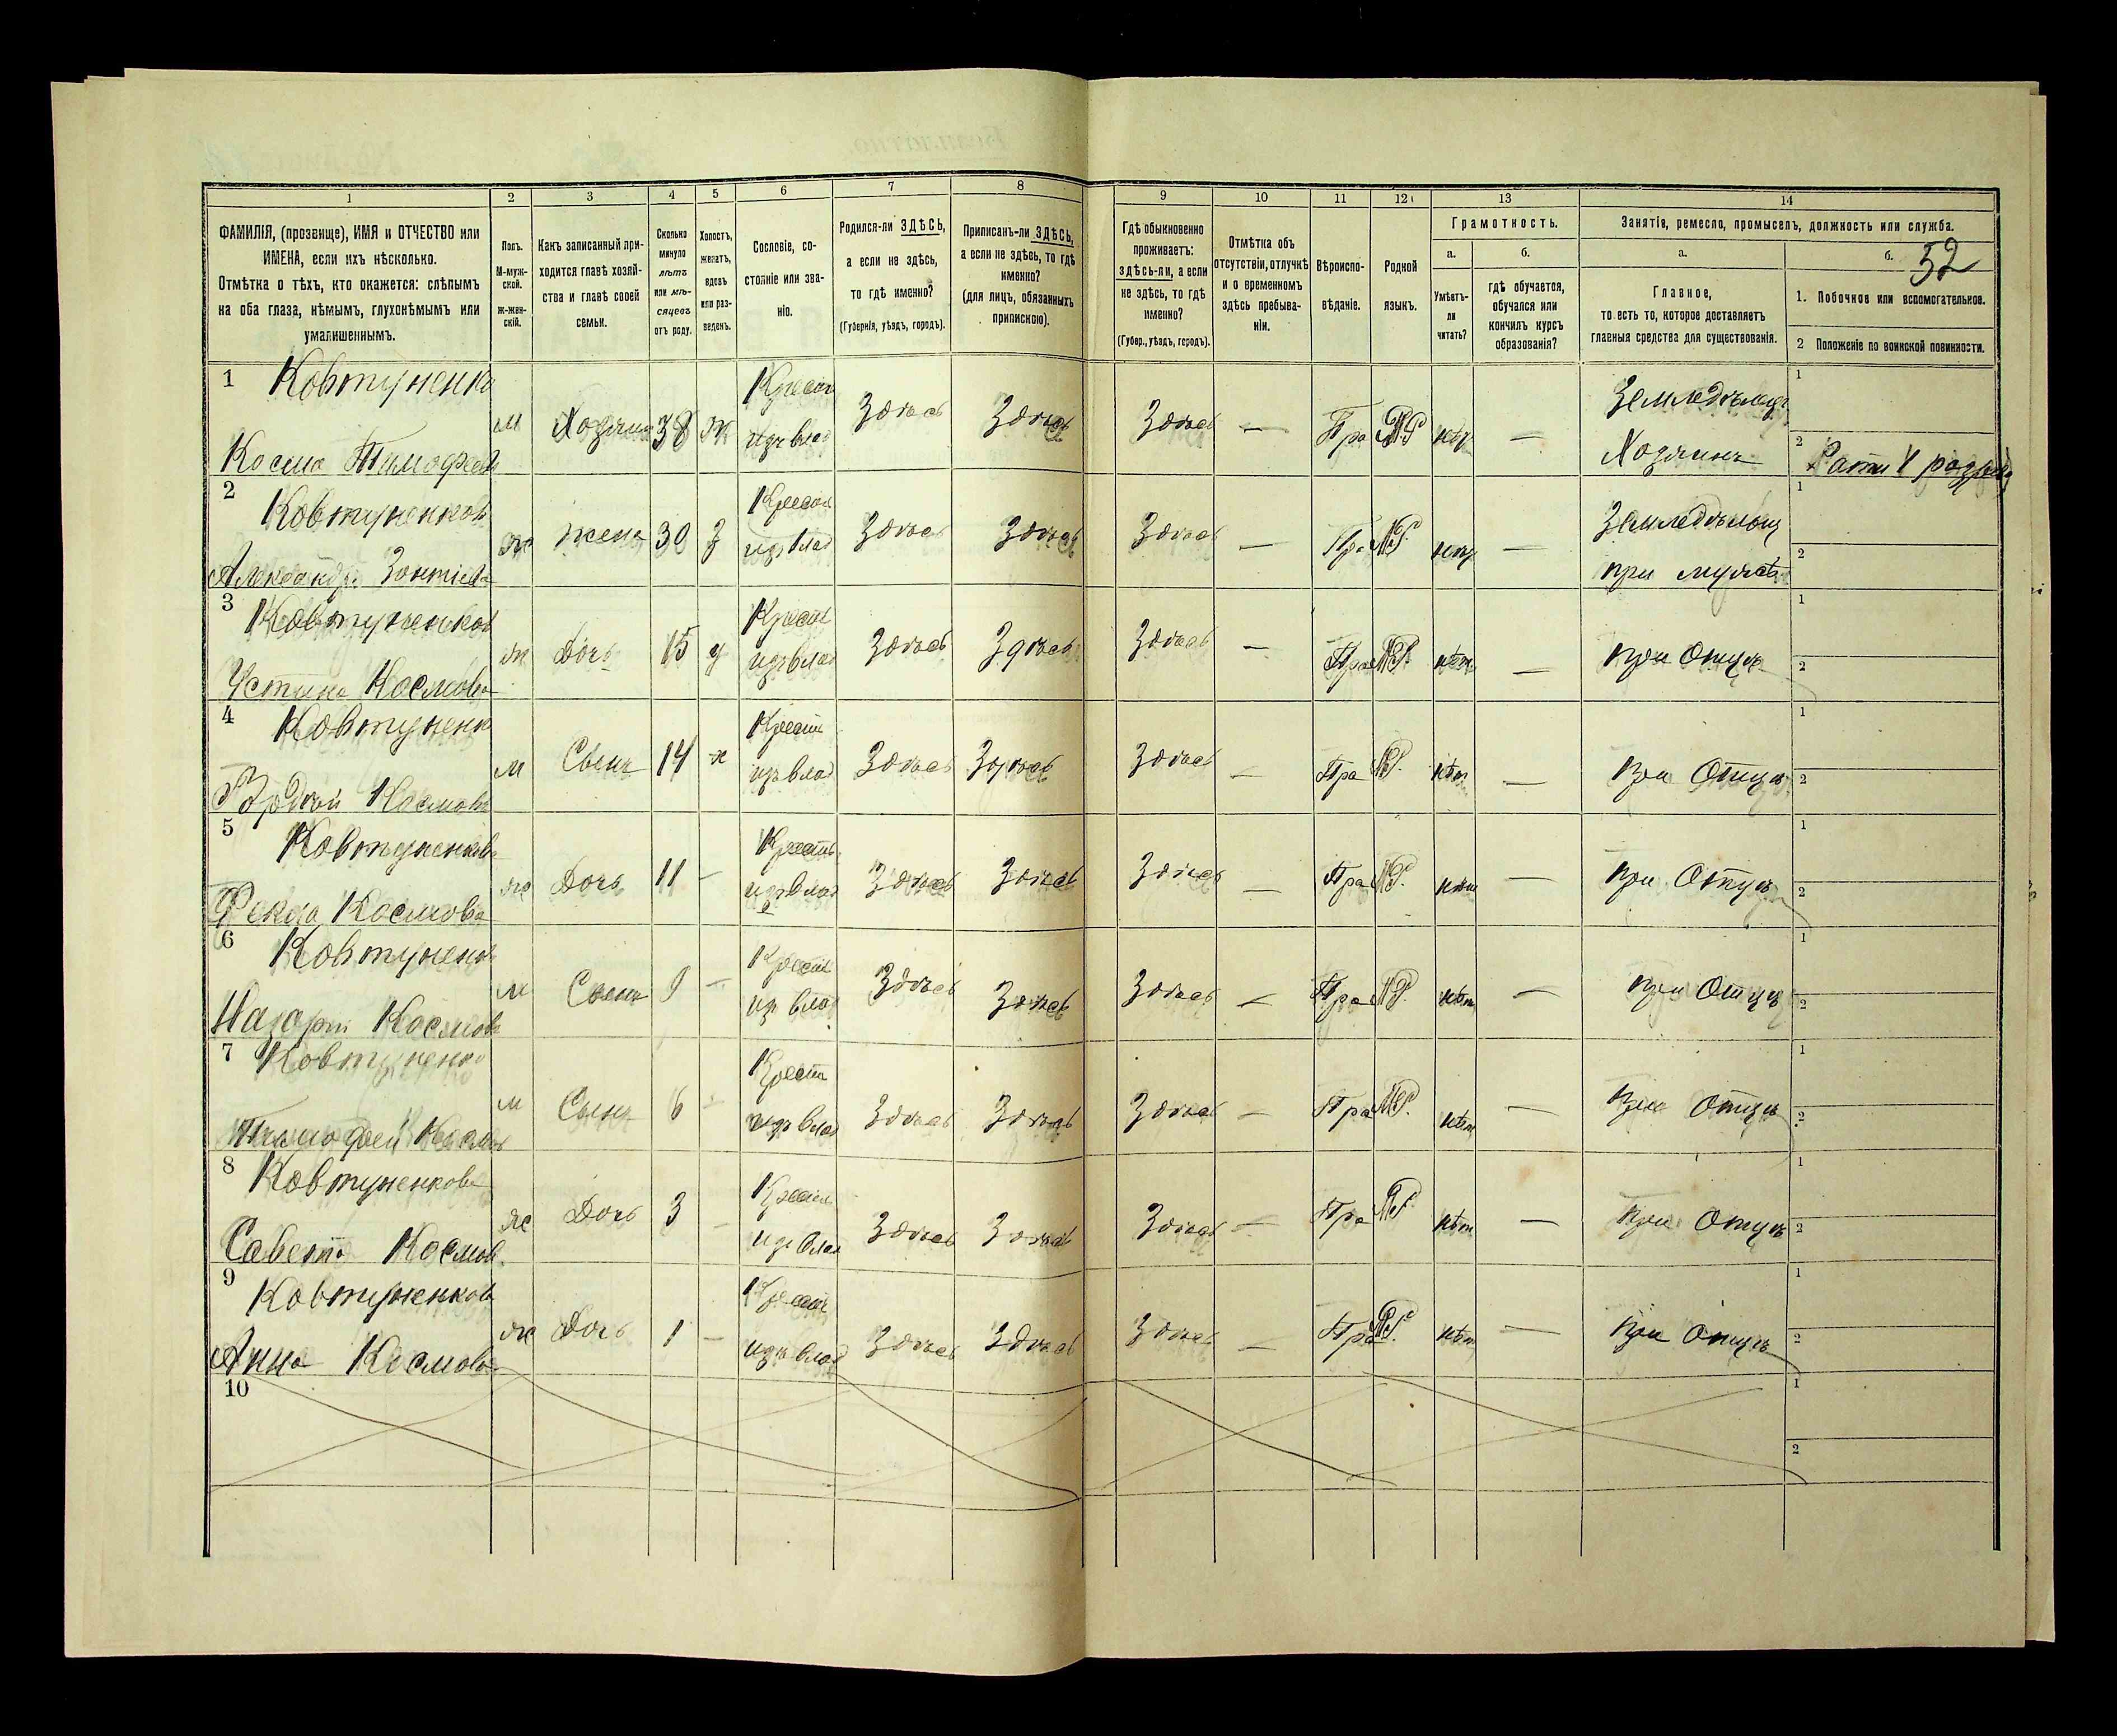 1 2 3 4 5 6 7 8 9 10 11 12 13 14
ФАМИЛІЯ, (прозвище), ИМЯ и ОТЧЕСТВО или
ИМЕНА, если ихъ нѣсколько.
Отмѣтка о тѣхъ, кто окажется: слѣпымъ
на оба глаза, нѣмымъ, глухонѣмымъ или
умалишеннымъ.
Полъ.
М-муж-
ской.
Ж-жен-
скій.
Какъ записанный при-
ходится главѣ хозяй-
ства и главѣ своей
семьи.
Сколько
минуло
лѣтъ
или мѣ-
сяцевъ
отъ роду.
Холостъ,
женатъ,
вдовъ
или раз-
веденъ.
Сословіе, со-
стояніе или зва-
ніе.
Родился-ли ЗДѢСЬ,
а если не здѣсь,
то гдѣ именно?
(Губернія, уѣздъ, городъ).
Приписанъ-ли ЗДѢСЬ,
а если не здѣсь, то гдѣ
именно?
(для лицъ, обязанныхъ
припискою).
Гдѣ обыкновенно
проживаетъ:
здѣсь-ли, а если
не здѣсь, то гдѣ
именно?
(Губер., уѣздъ, городъ).
Отмѣтка объ
отсутствіи, отлучкѣ
и о временномъ
здѣсь пребыва-
ніи.
Вѣроиспо-
вѣданіе.
Родной
языкъ.
Грамотность.
а.
Умѣетъ-
ли
читать?
б.
гдѣ обучается,
обучался или
кончилъ курсъ
образованія?
Занятія, ремесло, промыселъ, должность или служба.
а.
Главное,
то есть то, которое доставляетъ
главныя средства для существованія.
б. 52
1. Побочное или вспомогательное.
2 Положеніе по воинской повинности.
1 Ковтуненко Крестя Земледѣлецъ 1
Косма Тимофеев м Хозяин 38 ж изъ влад Здѣсь Здѣсь Здѣсь — Пра М.Р. нѣт — Хозяинъ 2 Рати 1 разряд
2 Ковтуненков Крестя Земледѣлец 1
Александр ж жена 30 з изъ влад Здѣсь Здѣсь Здѣсь — Пра М.Р. нѣт — при мужѣ 2
3 Ковтуненков Крестя 1
Устина Космова ж Дочь 15 изъ влад Здѣсь Здѣсь Здѣсь — Пра М.Р. нѣт — при Отцѣ 2
4 Ковтуненк Крестя 1
Космов м Сынъ 14 х изъ влад Здѣсь Здѣсь Здѣсь — Пра М.Р. нѣт — при Отцѣ 2
5 Ковтуненков Крестя 1
Фекла Космова ж Дочь 11 — изъ влад Здѣсь Здѣсь Здѣсь — Пра М.Р. нѣт — при Отцѣ 2
6 Ковтуненк Крестя 1
Назарій Космов м Сынъ 9 — изъ влад Здѣсь Здѣсь Здѣсь — Пра М.Р. нѣт — при Отцѣ 2
7 Ковтуненко Крестя 1
Тимофей Космов м Сынъ 6 — изъ влад Здѣсь Здѣсь Здѣсь — Пра М.Р. нѣт — при Отцѣ 2
8 Ковтуненкова Крестя 1
Космов ж Дочь 3 — изъ влад Здѣсь Здѣсь Здѣсь — Пра М.Р. нѣт — при Отцѣ 2
9 Ковтуненков Крестя 1
Анна Космова ж Дочь 1 — изъ влад Здѣсь Здѣсь Здѣсь — Пра М.Р. нѣт — при Отцѣ 2
10 1
2